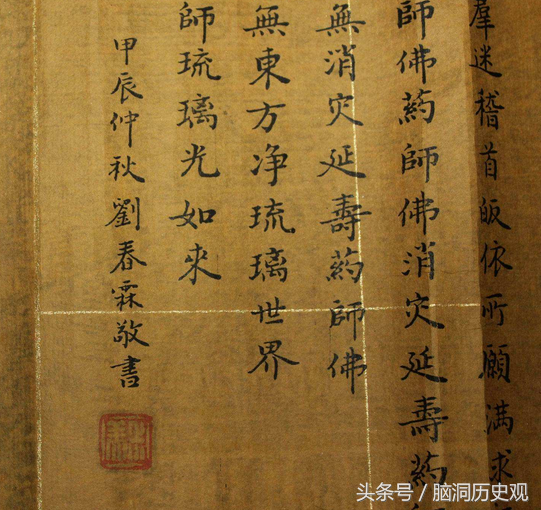 羣迷稽首皈依所願滿求
師佛葯師佛消灾延壽葯
無消灾延壽葯師佛
無東方净琉璃世界
師琉璃光如來
甲辰仲秋劉春霖敬書
头条号／脑洞历史观